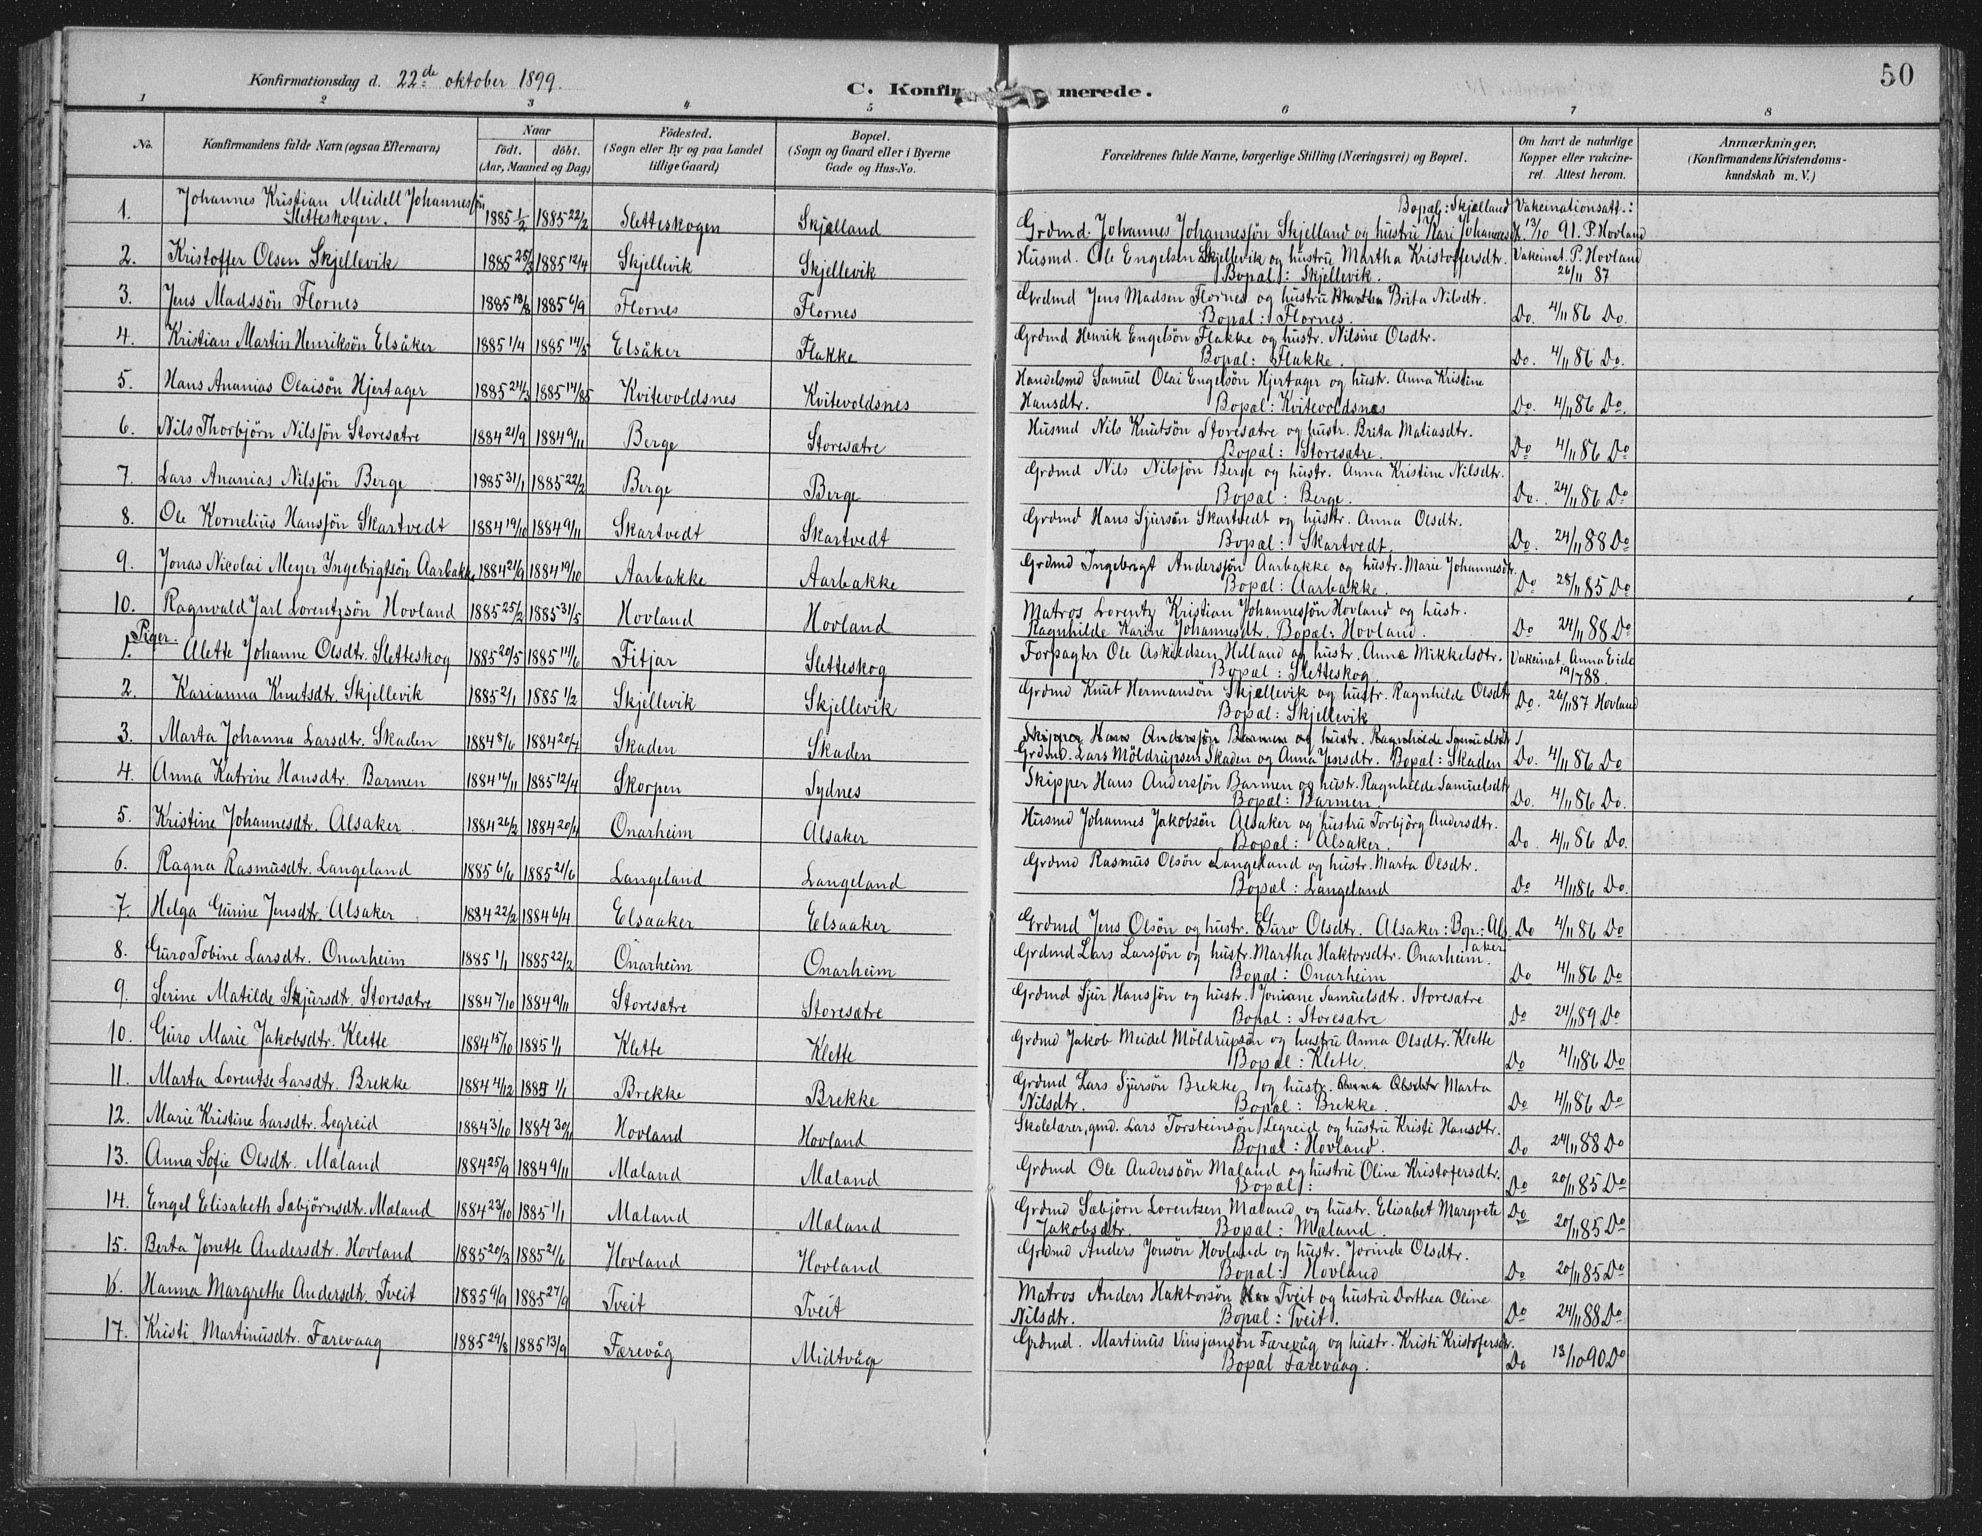 Konfirmationsdag d. 22de oktober 1899.
C. Konfir merede.
50
1 2 3 4 5 6 7 8
No.
Konfirmandens fulde Navn (ogsaa Efternavn)
Naar
født. døbt.
(Aar, Maaned og Dag)
Födested.
(Sogn eller By og paa Landet tillige Gaard)
Bopæl.
(Sogn og Gaard eller i Byerne Gade og Hus-No.
Forældrenes fulde Navne, borgerlige Stilling (Næringsvei) og Bopæl.
Om havt de naturlige Kopper eller vakcineret. Attest herom.
Anmærkninger.
(Konfirmandens Kristendomskundskab m. V.)
1. Johannes Kristian Meidell Johannessön Sletteskogen. 1885 1/2 1885 22/2 Sletteskogen Skjælland Grdmd. Johannes Johannessjön Skjelland og hustru Kari Johannesdt. Bopæl: Skjælland Vakcinationsatt.: 13/10 91. P. Hovland
2. Kristoffer Olsen Skjellevik 1885 25/3 1885 12/4 Skjellevik Skjellevik Husmd. Ole Engelsen Skjellevik og hustru Martha Kristoffersdtr. Bopæl: Skjellevik. Vakcinat. P. Hovland 26/11 87
3. Jens Madssön Flornes 1885 18/8 1885 6/9 Flornes Flornes Grdmd Jens Madsen Flornes og hustru Martha Brita Nilsdtr. Bopæl: Flornes. Do. 4/11 86 Do.
4. Kristian Martin Henriksön Elsåker 1885 1/4 1885 14/5 Elsåker Flakke Grdmd Henrik Engelsön Flakke og hustr. Nilsine Olsdtr. Bopæl: Flakke. Do. 4/11 86 Do.
5. Hans Ananias Olaisön Hjertager 1885 21/3 1885 14/85 Kvitevoldsnes Kvitevoldsnes Handelsmd Samuel Olai Engelsön Hjertager og hustr. Anna Kristine Hansdtr. Bopæl: Kvitevoldsnæs Do. 4/11 86 Do.
6. Nils Thorbjörn Nilsjön Storesætre 1884 21/9 1884 9/11 Berge Storesætre Husmd Nils Knutsön Storesætre og hustr. Brita Matiasdtr. Bopæl: Storesætre. Do 4/11 86 Do
7. Lars Ananias Nilsjön Berge 1885 31/1 1885 22/2 Berge Berge Grdmd Nils Nilsjön Berge og hustr. Anna Kristine Nilsdtr. Bopæl: Berge. Do. 24/11 86 Do
8. Ole Kornelius Hansjön Skartvedt 1884 19/10 1884 9/11 Skartvedt Skartvedt Grdmd Hans Sjursön Skartvedt og hustr. Anna Olsdtr. Bopæl: Skartvedt. Do. 24/11 88 Do
9. Jonas Nicolai Meyer Ingebrigtsön Aarbakke 1884 21/9 1884 19/10 Aarbakke Aarbakke Grdmd Ingebrigt Andersjön Aarbakke og hustr. Marie Johannesdtr. Bopæl: Aarbakke. Do 28/11 85 Do
10. Ragnvald Jarl Lorentzsön Hovland 1885 25/2 1885 31/5 Hovland Hovland Matros Lorentz Kristian Johannesjön Hovland og hustr. Ragnhilde Karine Johannesdtr. Bopæl: Hovland. Do 24/11 88 Do
Piger.
1. Alette Johanne Olsdtr. Sletteskog 1885 20/5 1885 14/6 Fitjar Sletteskog Forpagter Ole Askildsen Helland og hustr. Anna Mikkelsdtr. Bopæl: Sletteskog. Vakcinat. Anna Eide 19/7 88.
2. Karianna Knutsdtr. Skjellevik 1885 2/1 1885 1/2 Skjellevik Skjellevik Grdmd Knut Hermansön Skjællevik og hustr. Ragnhilde Olsdt Bopæl: Skjellevik Do. 26/11 87 Hovland
3. Marta Johanna Larsdtr. Skaden 1884 8/6 1884 20/4 Skaden Skaden Skipper Hans Andersjön Barmen og hustr. Ragnhilde Samuelsdt Grdmd. Lars Möldrupsen Skaden og Anna Jensdtr. Bopæl: Skaden Do. 4/11 86 Do
4. Anna Katrine Hansdtr. Barmen 1884 16/11 1885 12/4 Skorpen Sydnes Skipper Hans Andersjön Barmen og hustr. Ragnhilde Samuelsdt Bopæl: Barmen. Do. 4/11 86 Do.
5. Kristine Johannesdtr. Alsaker. 1884 26/2 1884 20/4 Onarheim Alsaker Husmd Johannes Jakobsön Alsaker og hustru Torbjörg Andersdtr. Bopæl: Alsaker. Do. 4/11 86 Do.
6. Ragna Rasmusdtr. Langeland 1885 6/6 1885 21/6 Langeland Langeland Grdmd Rasmus Olsön Langeland og hustr. Marta Olsdtr. Bopæl: Langeland Do 4/11 86 Do.
7. Helga Gurine Jensdtr. Alsaker 1884 22/2 1884 6/4 Elsaaker Elsaaker Grdmd Jens Olsön og hustr. Guro Olsdtr. Alsaker: Bop.: Alsaker Do 4/11 86 Do
8. Guro Tobine Larsdtr. Onarheim 1885 1/1 1885 22/2 Onarheim Onarheim Grdmd Lars Larsjön og hustr. Martha Haktorsdtr. Onarheim. Bopæl: Onarheim Do 4/11 86 Do
9. Serine Matilde Sjursdtr. Storesætre 1884 7/10 1884 9/11 Storesætre Storesætre Grdmd Sjur Hansjön og hustr. Joniane Samuelsdtr. Storesætre Bopæl: Storesætre Do 24/11 89 Do
10. Guro Marie Jakobsdtr. Klette 1884 15/10 1885 1/1 Klette Klette Grdmd Jakob Meidel Möldrupsön og hustru Anna Olsdtr. Klette Bopæl: Klette. Do 4/11 86 Do
11. Marta Lorentse Larsdtr. Brekke 1884 4/12 1885 1/1 Brekke Brekke Grdmd Lars Sjursön Brekke og hustr. Anna Olsdtr Marta Nilsdtr. Bopæl: Brekke. Do 4/11 86 Do
12. Marie Kristine Larsdtr. Legreid 1884 3/10 1884 30/11 Hovland Hovland Skolelærer, gmd. Lars Torsteinsön Legreid og hustru Kristi Hansdtr. Bopæl: Hovland. Do 24/11 88 Do
13. Anna Sofie Olsdtr. Mæland 1884 25/9 1884 9/11 Mæland Mæland Grdmd Ole Anderssön Mæland og hustru Oline Kristofersdtr. Bopæl: Do 20/11 85 Do
14. Engel Elisabeth Sæbjörnsdtr. Mæland 1884 23/10 1885 1/1 Mæland Mæland Grdmd Sæbjörn Lorentsen Mæland og hustr. Elisabet Margrete Jakobsdtr. Bopæl: Mæland. Do 20/11 85 Do
15. Berta Jonette Andersdtr. Hovland 1885 20/3 1885 21/6 Hovland Hovland Grdmd Anders Jonsön Hovland og hustr. Jorinde Olsdtr. Bopæl: Hovland Do 20/11 85 Do
16. Hanna Margrethe Andersdtr. Tveit 1885 6/9 1885 27/9 Tveit Tveit Matros Anders Haktorsön Tveit og hustru Dorthea Oline Nilsdtr. Bopæl: Tveit. Do 24/11 88 Do
17. Kristi Martinusdtr. Færevaag 1885 24/8 1885 13/9 Færevåg Midtvåge Grdmd. Martinus Vinsjansön Færevåg og hustr. Kristi Kristofersdtr. Bopæl Færevaag. Do 13/10 90 Do